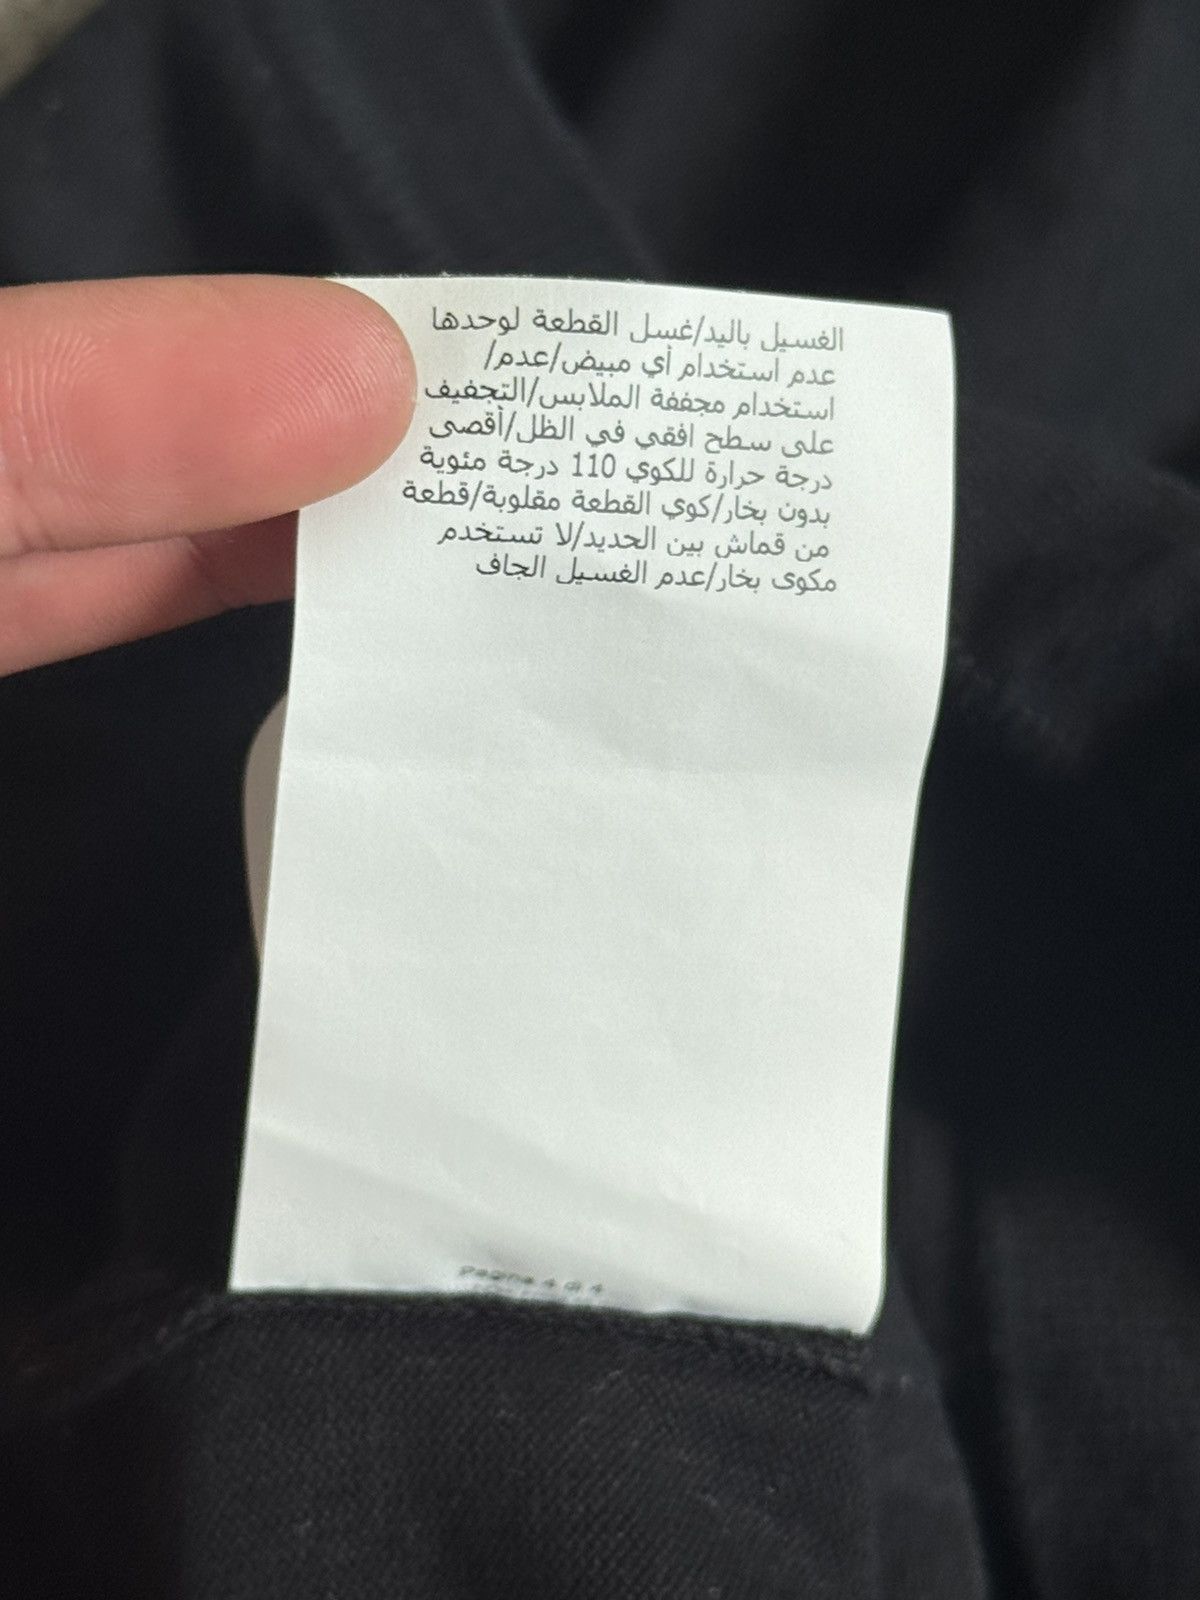 الغسيل باليد/غسل القطعة لوحدها
عدم استخدام أي مبيض/عدم/
استخدام مجففة الملابس/التجفيف
على سطح افقي في الظل/أقصى
درجة حرارة للكوي 110 درجة مئوية
بدون بخار/كوي القطعة مقلوبة/قطعة
من قماش بين الحديد/لا تستخدم
مكوى بخار/عدم الغسيل الجاف
pagina 4 di 4